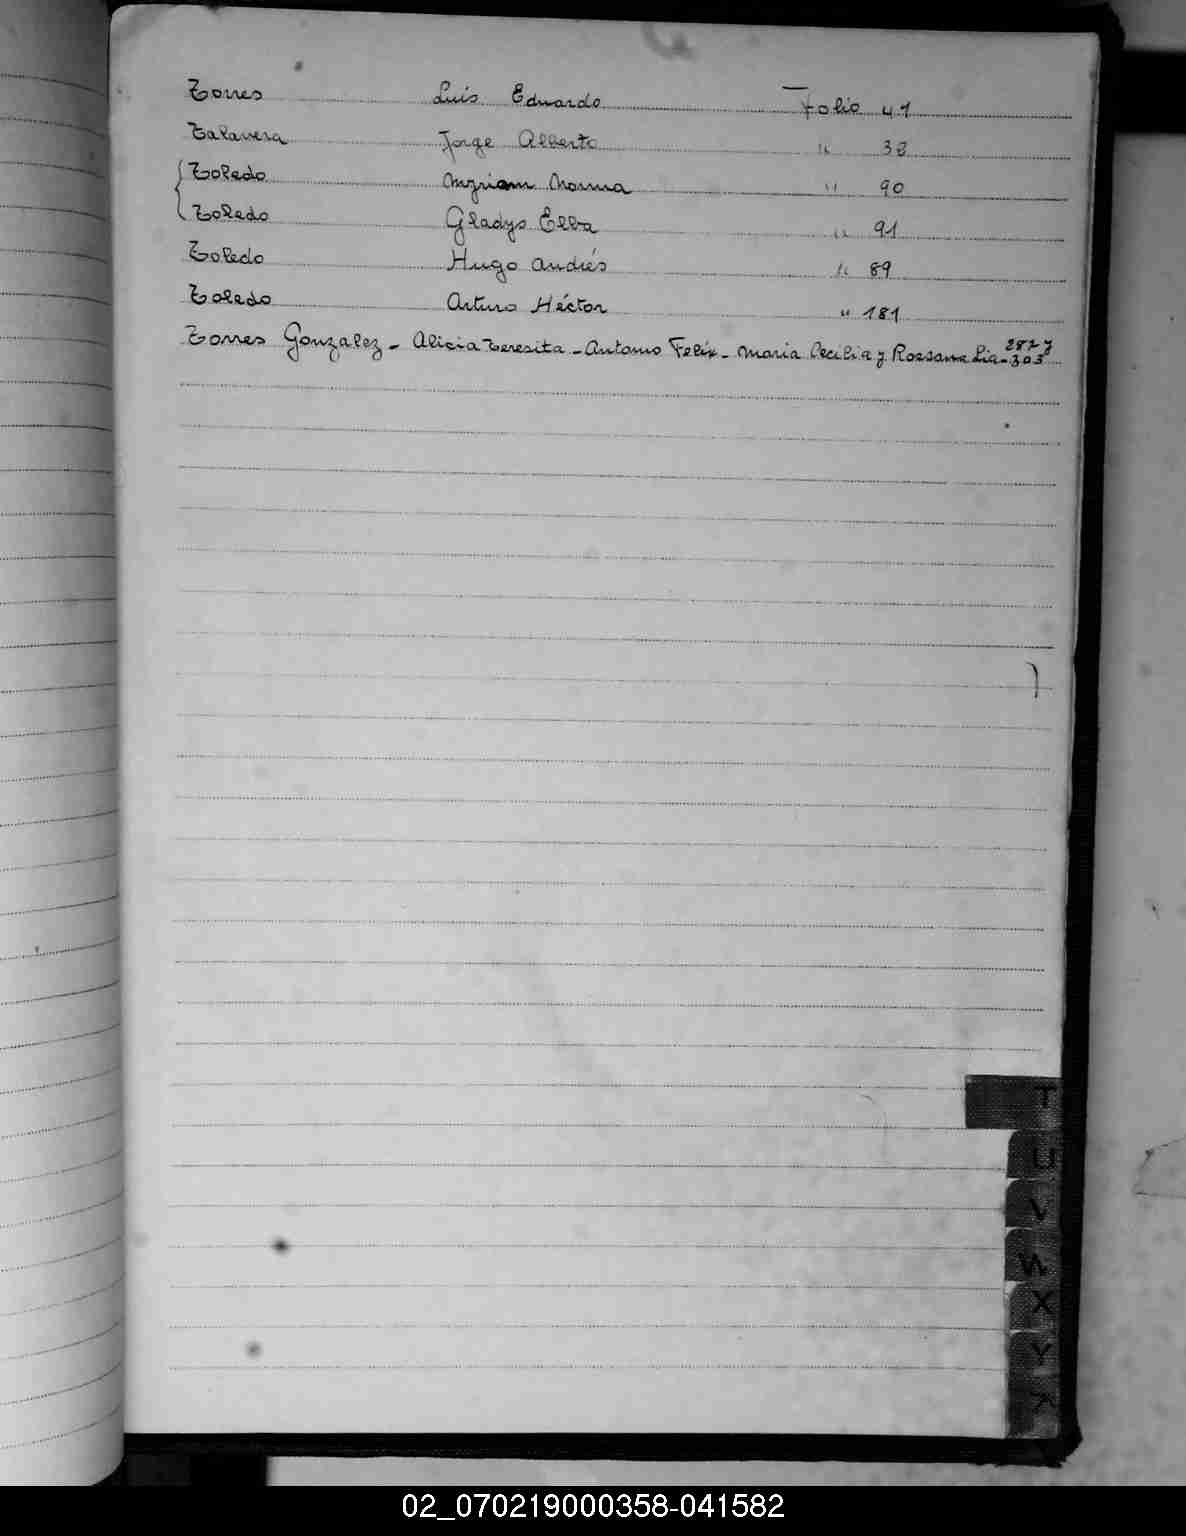 Torres Luis Eduardo Folio 41
Talavera Jorge Alberto " 38
Toledo Myriam Norma " 90
Toledo Gladys Elba " 91
Toledo Hugo Andrés " 89
Toledo Arturo Héctor " 181
Torres Gonzalez - Alicia Teresita - Antonio Felix - Maria Cecilia y Rossana Lia - 287 y 303
T
U
V
W
X
Y
02_070219000358-041582